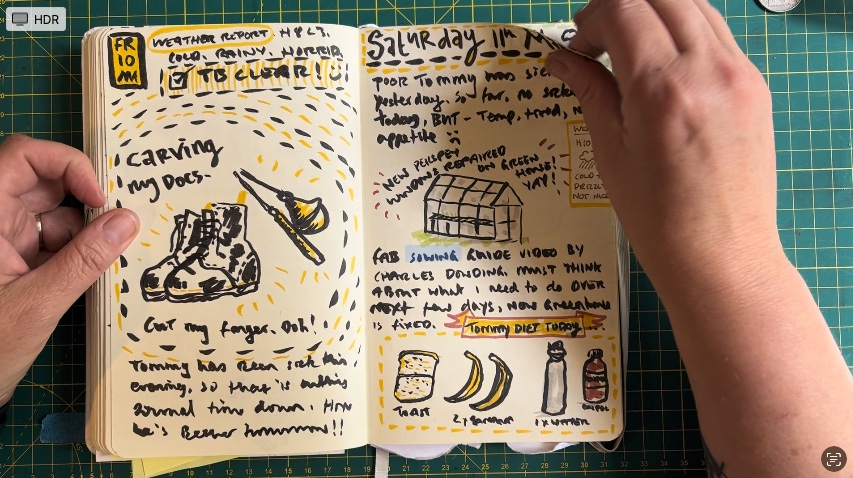 HDR
FRI
10
MAR
WEATHER REPORT H8 L3.
COLD, RAINY, HORRID
TB CLEAR!
CARVING
my DOCS-
Cut my finger. Ooh!
Tommy has been sick this
evening, so that is nothing
normal time down. Hope
he's Better tomorrow!!
Saturday 11th M
POOR Tommy was sick
yesterday. so far, no sick
today, BUT - Temp, tired, n
appetite
NEW PERSPEX
WINDOWS REPAIRED
ON GREEN
HOUSE!
YAY!
WE
H10
COLD
DRIZZL
NOT NICE
FAB SOWING GUIDE VIDEO BY
CHARLES DOWDING. MUST THINK
ABOUT WHAT I need to do OVER
NEXT few DAYS, NOW GREENHOUSE
is FIXED.
Tommy DIET TODAY
TOAST
2 x BANANA
1 x WATER
CALPOL